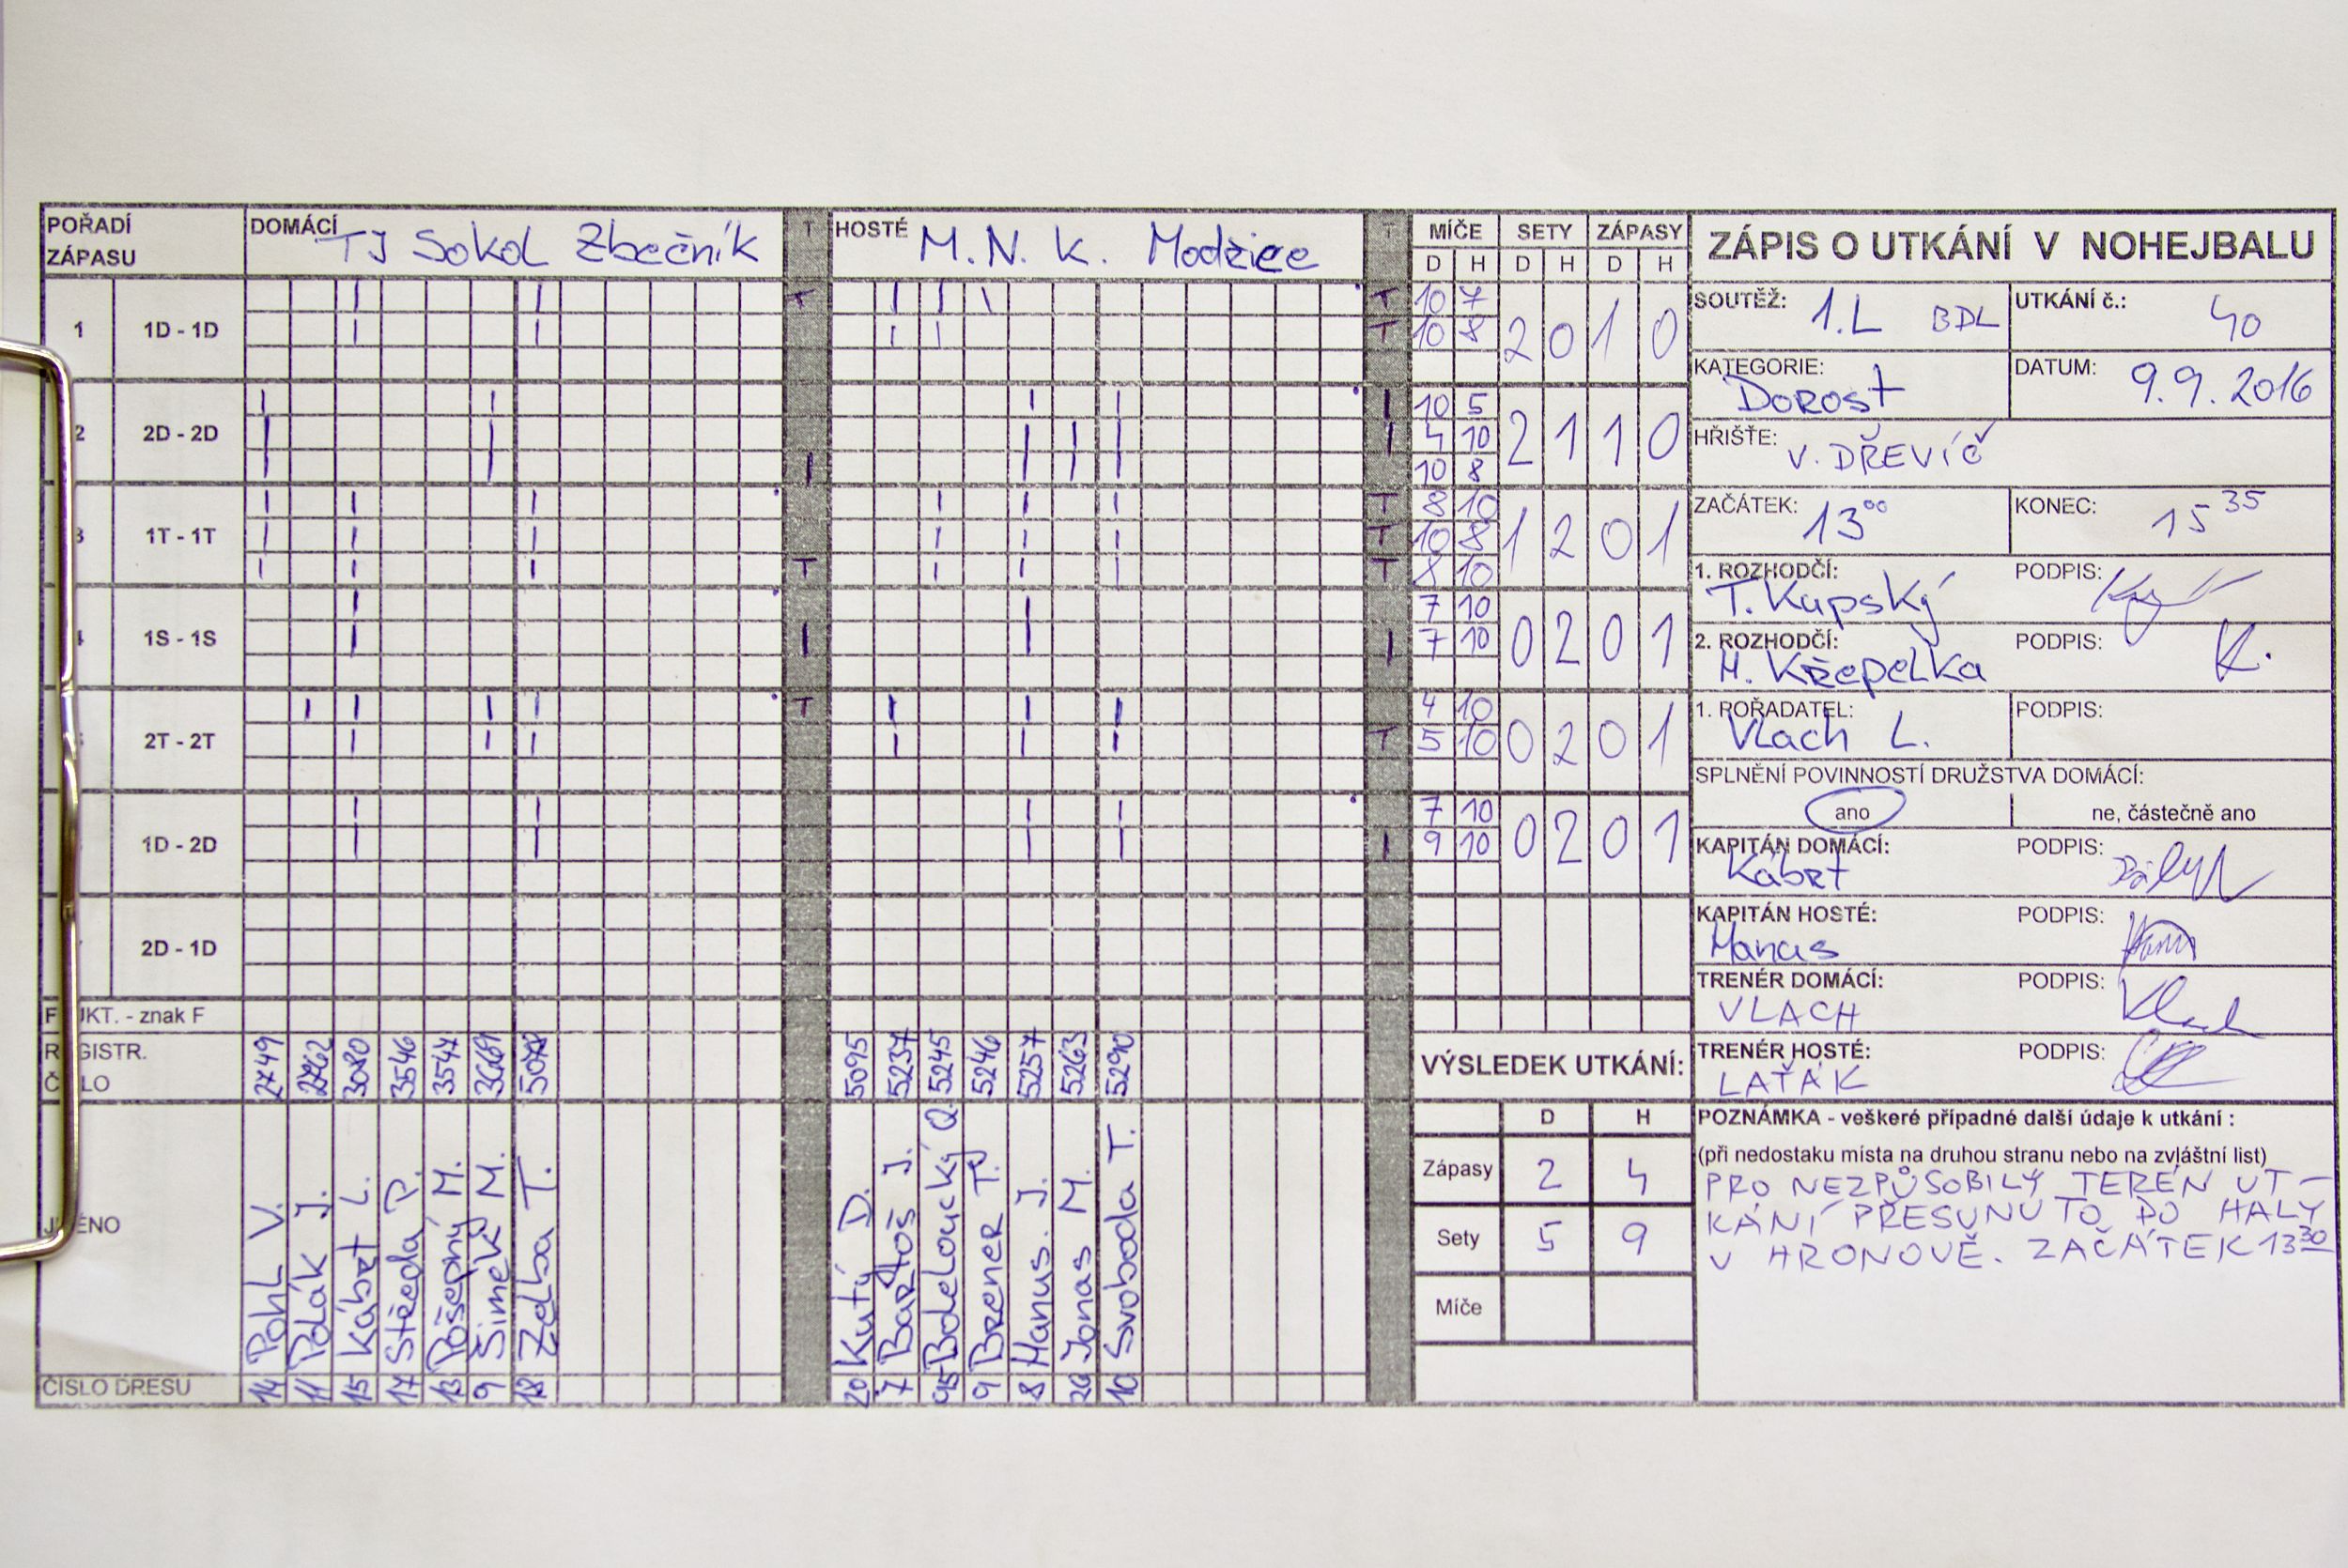 POŘADÍ ZÁPASU DOMÁCÍ TJ Sokol Zbečník T HOSTÉ M.N.K. Modřice T MÍČE SETY ZÁPASY
D H D H D H
1 1D - 1D T T 10 7 2 0 1 0
T 10 8
2 2D - 2D 10 5 2 1 1 0
4 10
10 8
3 1T - 1T T 8 10 1 2 0 1
T 10 8
T T 8 10
1S - 1S 7 10 0 2 0 1
7 10
2T - 2T T 4 10 0 2 0 1
T 5 10
1D - 2D 7 10 0 2 0 1
9 10
2D - 1D
UKT. - znak F
REGISTR. ČÍSLO 3080 3546 5095 5237 5245 5246 5257 5263 5290
JMÉNO Pohl V. Polák J. Kábrt L. Středa P. Pošepný M. Šimek M. Zelba T. Kutý D. Bartoš J. Brener T. Hanus. J. Jonas M. Svoboda T.
ČÍSLO DRESU 14 11 15 17 13 9 18 20 7 95 9 8 26 10
VÝSLEDEK UTKÁNÍ:
D H
Zápasy 2 4
Sety 5 9
Míče
ZÁPIS O UTKÁNÍ V NOHEJBALU
SOUTĚŽ: 1.L BDL UTKÁNÍ č.: 40
KATEGORIE: Dorost DATUM: 9.9.2016
HŘIŠTE: V. DŘEVÍČ
ZAČÁTEK: 13 00 KONEC: 15 35
1. ROZHODČÍ: T. Kapský PODPIS:
2. ROZHODČÍ: M. Křepelka PODPIS: K.
1. POŘADATEL: Vlach L. PODPIS:
SPLNĚNÍ POVINNOSTÍ DRUŽSTVA DOMÁCÍ:
ano ne, částečně ano
KAPITÁN DOMÁCÍ: Kábrt PODPIS:
KAPITÁN HOSTÉ: Hanus PODPIS:
TRENÉR DOMÁCÍ: VLACH PODPIS: Vlach
TRENÉR HOSTÉ: LAŤÁK PODPIS:
POZNÁMKA - veškeré případné další údaje k utkání :
(při nedostaku místa na druhou stranu nebo na zvláštní list)
PRO NEZPŮSOBILÝ TERÉN UT-
KÁNÍ PŘESUNUTO DO HALY
V HRONOVĚ. ZAČÁTEK 13 30